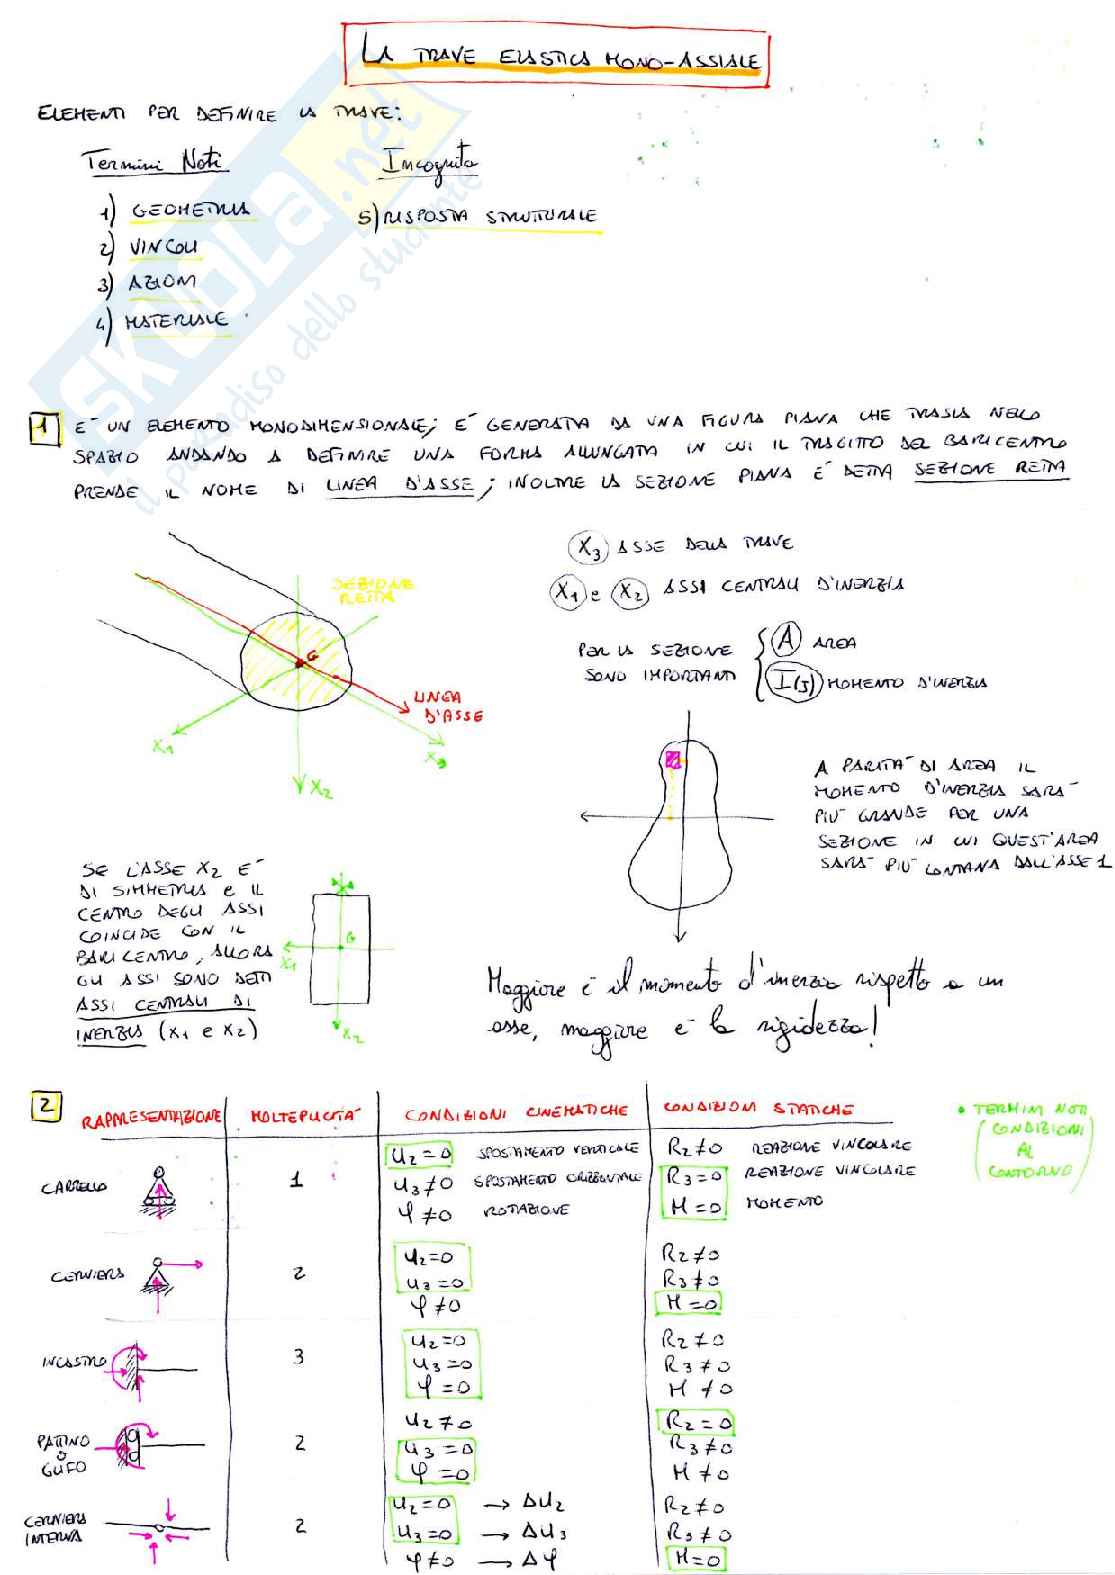 LA TRAVE ELASTICA MONO-ASSIALE
ELEMENTI PER DEFINIRE LA TRAVE:
Termini Noti
Incognita
1) GEOMETRIA
2) VINCOLI
3) AZIONI
4) MATERIALE
5) RISPOSTA STRUTTURALE
SKUOLA.net
il paradiso dello studente
1 E' UN ELEMENTO MONODIMENSIONALE; E' GENERATA DA UNA FIGURA PIANA CHE TRASLA NELLO
SPAZIO ANDANDO A DEFINIRE UNA FORMA ALLUNGATA IN CUI IL TRAGITTO DEL BARICENTRO
PRENDE IL NOME DI LINEA D'ASSE; INOLTRE LA SEZIONE PIANA E' DETTA SEZIONE RETTA
SEZIONE
RETTA
G
LINEA
D'ASSE
X1
X2
X3
X3 ASSE DELLA TRAVE
X1 e X2 ASSI CENTRALI D'INERZIA
PER LA SEZIONE
SONO IMPORTANTI
A AREA
I(J) MOMENTO D'INERZIA
A PARITA' DI AREA IL
MOMENTO D'INERZIA SARA'
PIU' GRANDE PER UNA
SEZIONE IN CUI QUEST'AREA
SARA' PIU' LONTANA DALL'ASSE 1
SE L'ASSE X2 E'
DI SIMMETRIA e IL
CENTRO DEGLI ASSI
COINCIDE CON IL
BARICENTRO, ALLORA
GLI ASSI SONO DETTI
ASSI CENTRALI DI
INERZIA (X1 e X2)
G
X1
X2
Maggiore è il momento d'inerzia rispetto a un
asse, maggiore è la rigidezza!
2
RAPPRESENTAZIONE | MOLTEPLICITA' | CONDIZIONI CINEMATICHE | CONDIZIONI STATICHE
• TERMINI NOTI
(CONDIZIONI
AL
CONTORNO)
CARRELLO
1
u2=0 SPOSTAMENTO VERTICALE
u3≠0 SPOSTAMENTO ORIZZONTALE
φ≠0 ROTAZIONE
R2≠0 REAZIONE VINCOLARE
R3=0 REAZIONE VINCOLARE
M=0 MOMENTO
CERNIERA
2
u2=0
u3=0
φ≠0
R2≠0
R3≠0
M=0
INCASTRO
3
u2=0
u3=0
φ=0
R2≠0
R3≠0
M≠0
PATTINO
O
GLIFO
2
u2≠0
u3=0
φ=0
R2=0
R3≠0
M≠0
CERNIERA
INTERNA
2
u2=0 → Δu2
u3=0 → Δu3
φ≠0 → Δφ
R2≠0
R3≠0
M=0